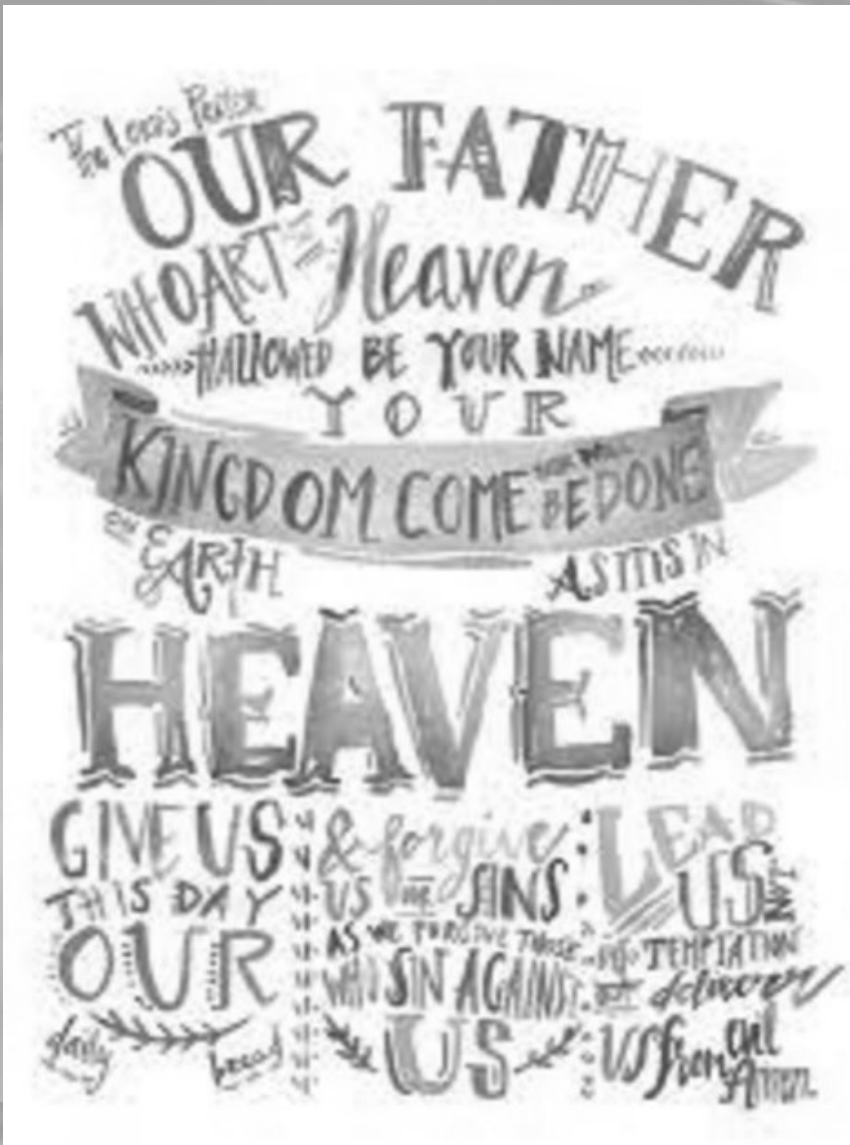 The Lord's Prayer
OUR FATHER
WHO ART IN Heaven
HALLOWED BE YOUR NAME
YOUR
KINGDOM COME YOUR WILL BE DONE
ON EARTH AS IT IS IN
HEAVEN
GIVE US
THIS DAY
OUR
daily bread
& forgive
US OUR SINS
AS WE FORGIVE THOSE
WHO SIN AGAINST
US
LEAD
US NOT
INTO TEMPTATION
BUT deliver
US from evil
Amen.